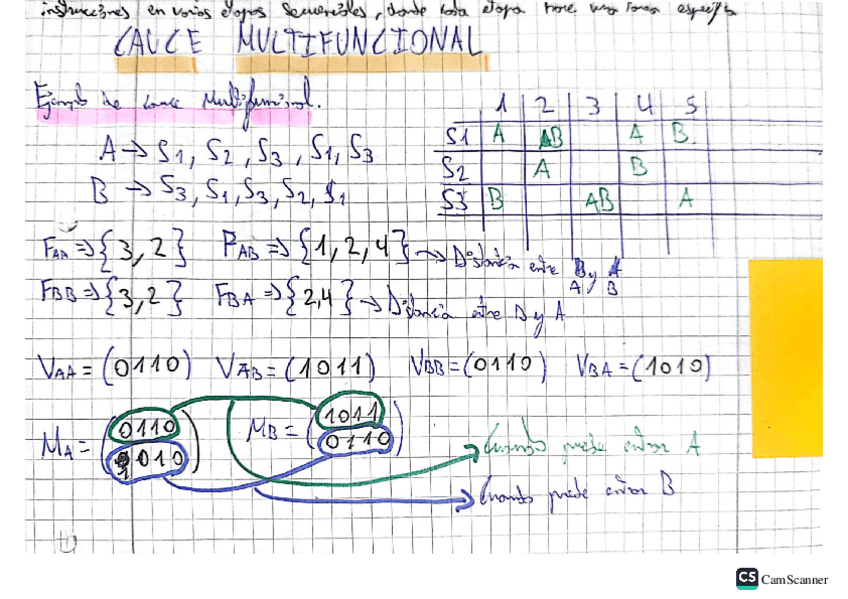 instrucciones en varias etapas secuenciales, donde cada etapa hace una tarea específica
CAUCE MULTIFUNCIONAL
Ejemplo de cauce Multifuncional.
A → S1, S2, S3, S1, S3
B → S3, S1, S3, S2, S1
1 2 3 4 5
S1 A AB A B
S2 A B
S3 B AB A
FAA => {3, 2} FAB => {1, 2, 4} → Distancia entre A y B
FBB => {3, 2} FBA => {2,4} → Distancia entre B y A
VAA = (0110) VAB = (1011) VBB = (0110) VBA = (1010)
MA = (0110 1010) MB = (1011 0110)
→ Cuando puede entrar A
→ Cuando puede entrar B
CS CamScanner